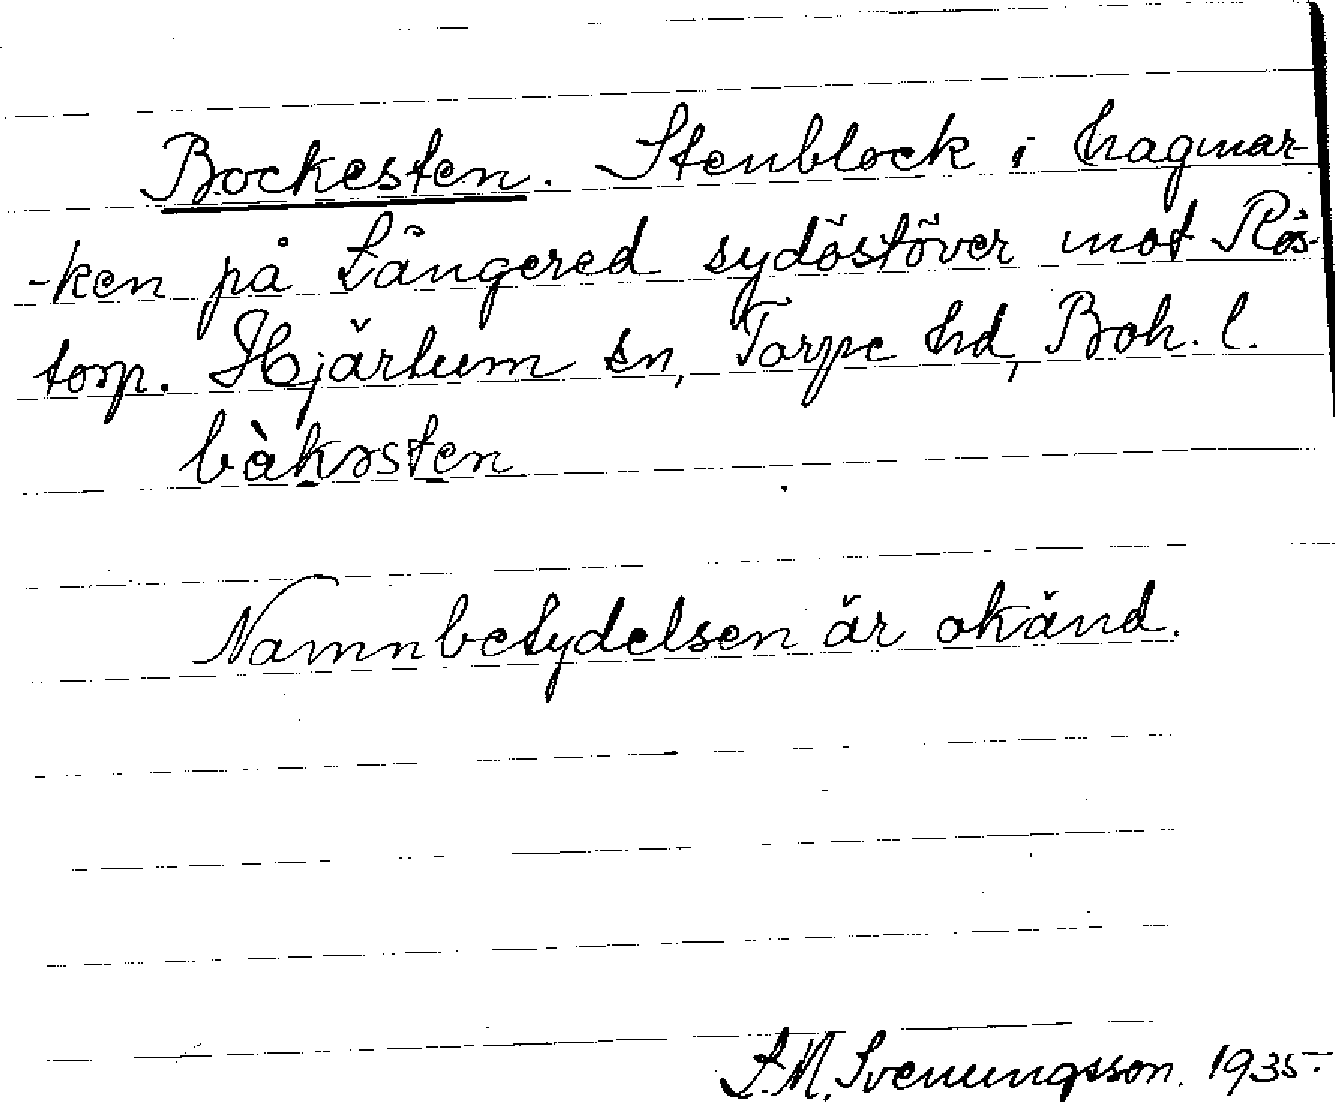 Bockesten. Stenblock i hagmar-
-ken på Långered sydöstöver mot Rös-
torp. Hjärtum sn, Torpe hd, Boh. l.
bàkəsten
Namnbetydelsen är okänd.
L.M. Svenungsson. 1935.